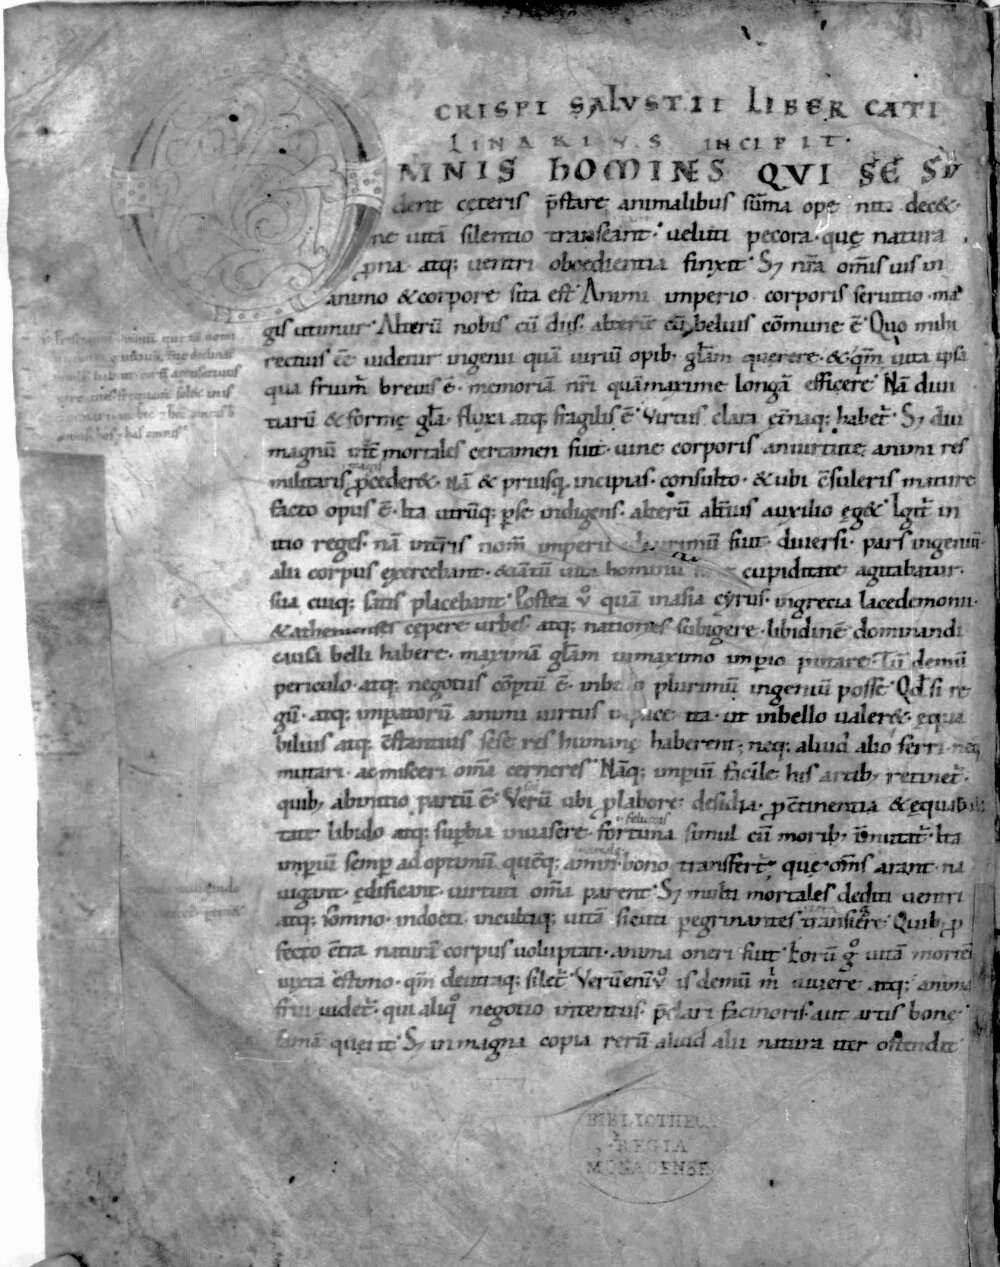 CRISPI SALVSTII LIBER CATI
LINARIVS INCIPIT.
OMNIS HOMINES QVI SE SV
dent ceteris p̄stare animalibus sūma ope niti dec&.
ne uitā silentio transeant. ueluti pecora. quę natura
pna atq; uentri oboedientia finxit. Sȝ nr̄a om̄is uis in
animo & corpore sita est. Animi imperio corporis seruitio. ma
gis utimur. Alterū nobis cū dis. alterū cū beluis cōmune ē. Quo mihi
rectius eē uidetur ingenii quā uiriū opibȝ głam querere. & qm̄ uita ipsa
qua fruim̄ breuis ē. memoriā nr̄i quāmaxime longā efficere. Nā diui
tiarū & formę gła fluxa atq; fragilis ē. Virtus clara et̄naq; habet̄. Sȝ diu
magnū int̄ mortales certamen fuit. uine corporis aniuirtute animi res
militaris p̄ceder&. nā & priusq̄ incipias. consulto. & ubi cōsuleris mature
facto opus ē. Ita utrūq; p̄se indigens. alterū alt̄ius auxilio eg&. Igit̄ in
itio reges. nā int̄ris nom̄ imperii fuit. diuersi. pars ingeniū.
alii corpus exercebant. &iātū uita hominū cupiditate agitabatur.
sua cuiq; satis placebant. Postea ů quā inasia cyrus. ingrecia lacedemonii.
& athenienses cepere urbes atq; nationes subigere. libidinē dominandi
causa belli habere. maximā głam inmaximo imp̄io putare. Tū demū
periculo. atq; negotiis cōptū ē. inbello plurimū ingeniū posse. Qd̄ si re
gū. atq; imp̄atorū animi uirtus inpace ita. ut inbello ualer&. ęqua
bilius atq; cōstantius sese res humanę haberent. neq; aliud alio ferri. neq
mutari. ac misceri om̄a cerneres. Nāq; imp̄iū facile his artibȝ retinet̄.
quibȝ abinitio partū ē. Verū ubi p̄labore desidia. p̄ cōtinentia & ęquabili
tate libido atq; sup̄bia inuasere. fortuna simul cū moribȝ īmutat̄. Ita
imp̄iū semp̄ ad optimū quēq; aminus bono transfert̄. quę om̄s arant. na
uigant. ędificant. uirtuti om̄a parent. Sȝ multi mortales dediti uentri
atq; somno. indocti. incultiq; uitā sicuti pegrinantes transiere. Quibȝ p̄
fecto cōtra naturā corpus uoluptati. anima oneri fuit. Eorū g̊ uitā mortē
iuxta ęstimo. qm̄ deutraq; silet̄. Verūenimů is demū m̄ uiuere atq; anima
frui uidet̄. qui aliq̊ negotio intentus. p̄clari facinoris. aut artis bonę
famā querit. Sȝ inmagna copia rerū aliud alii natura iter ostendit
BIBLIOTHECA
REGIA
MONACENSIS